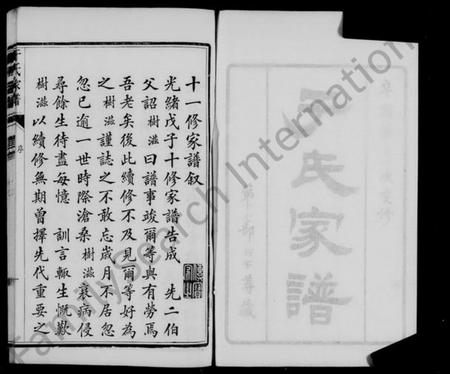 十一修家譜叙
光緒戊子十修家譜告成 先二伯
父詔樹滋曰譜事竣爾等與有勞焉
吾老矣後此續修不及見爾等好為
之樹滋謹誌之不敢忘歲月不居忽
忽已逾一世時際滄桑樹滋衰病侵
尋餘生待盡每憶 訓言輒生慨歎
樹滋以續修無期曾擇先代重要之
氏家譜
序
氏家譜
FamilySearch International